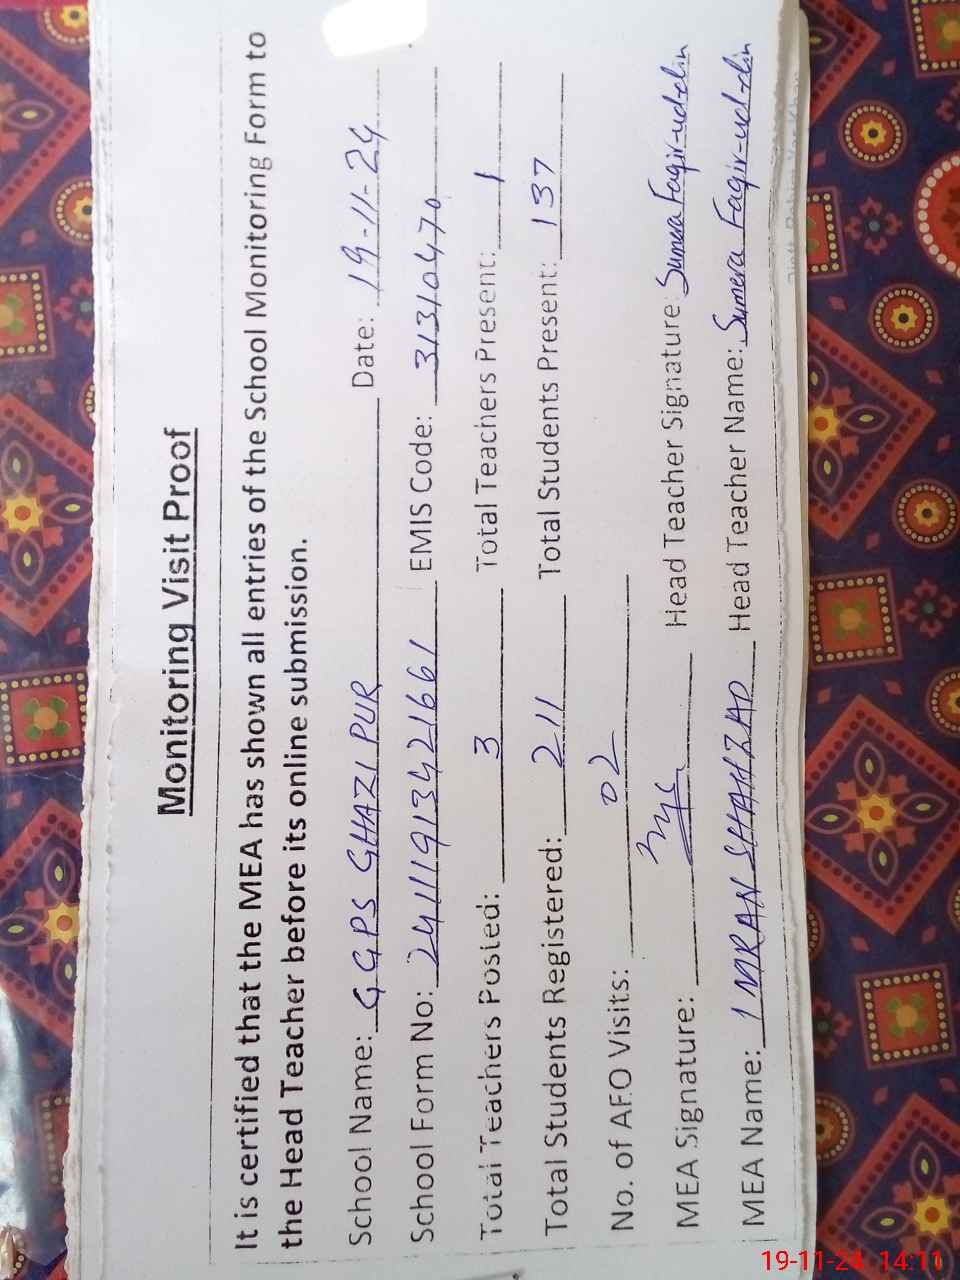 Monitoring Visit Proof
It is certified that the MEA has shown all entries of the School Monitoring Form to
the Head Teacher before its online submission.
School Name: GGPS GHAZI PUR Date: 19-11-24
School Form No: 241111913421661 EMIS Code: 31310470
Total Teachers Posted: 3 Total Teachers Present: 1
Total Students Registered: 211 Total Students Present: 137
No. of AEO Visits: 02
MEA Signature: Head Teacher Signature: Sumera Faqir-ud-din
MEA Name: IMRAN SHAHZAD Head Teacher Name: Sumera Faqir-ud-din
19-11-24 14:11